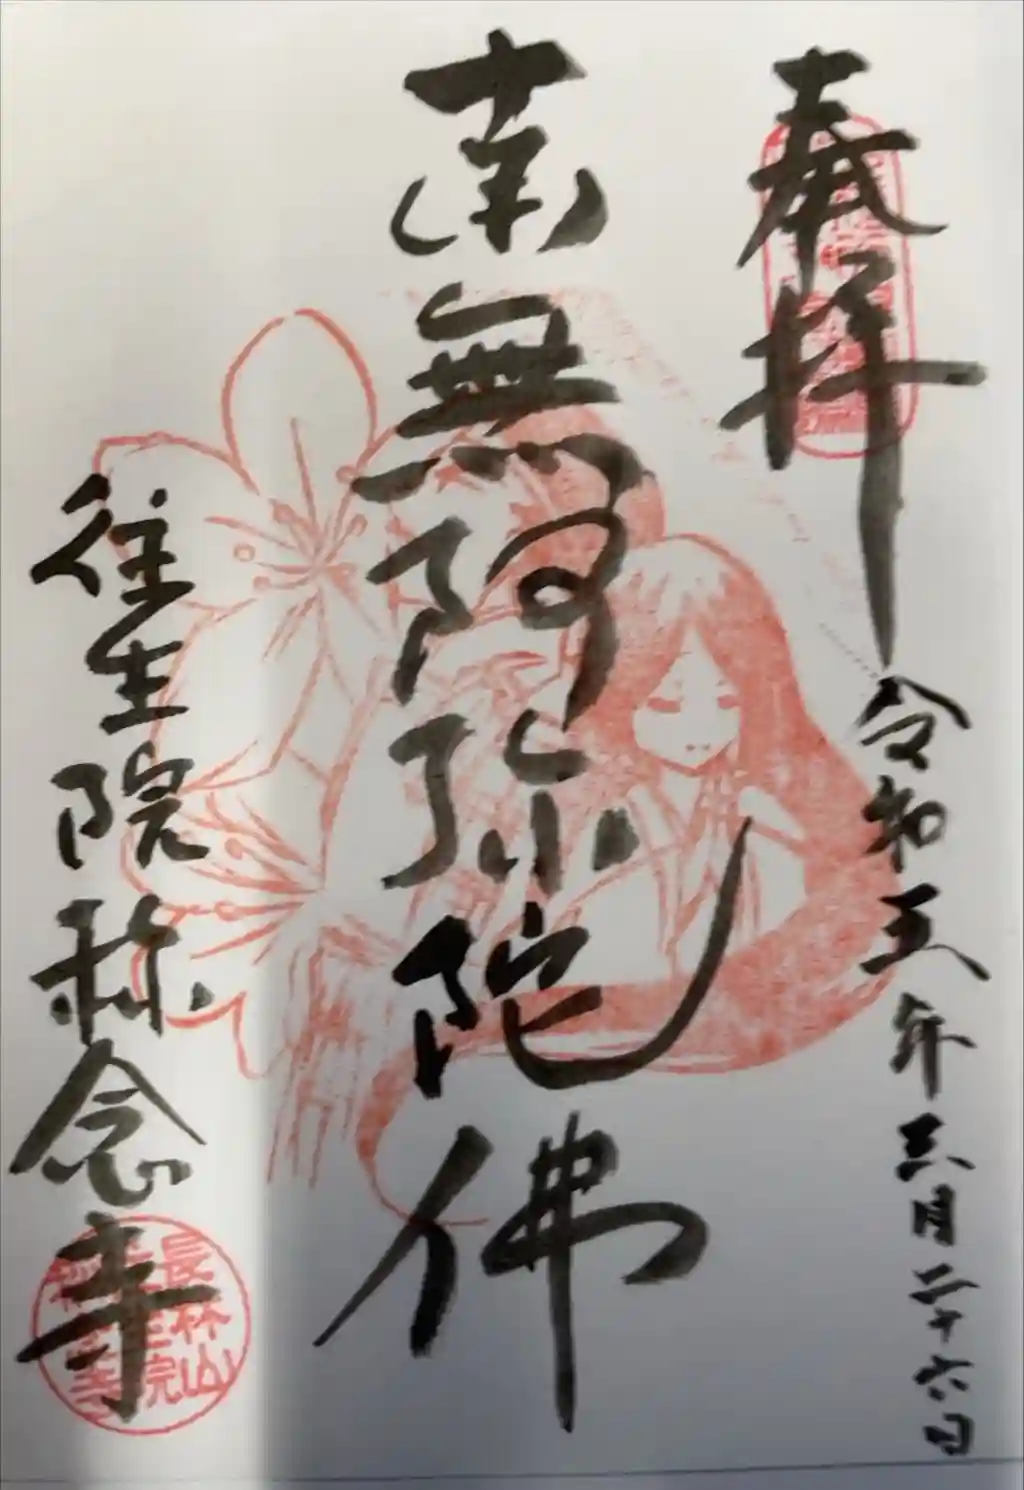 奉拝
令和五年三月二十六日
南無阿弥陀佛
往生院称念寺
長林山
往生院
称念寺